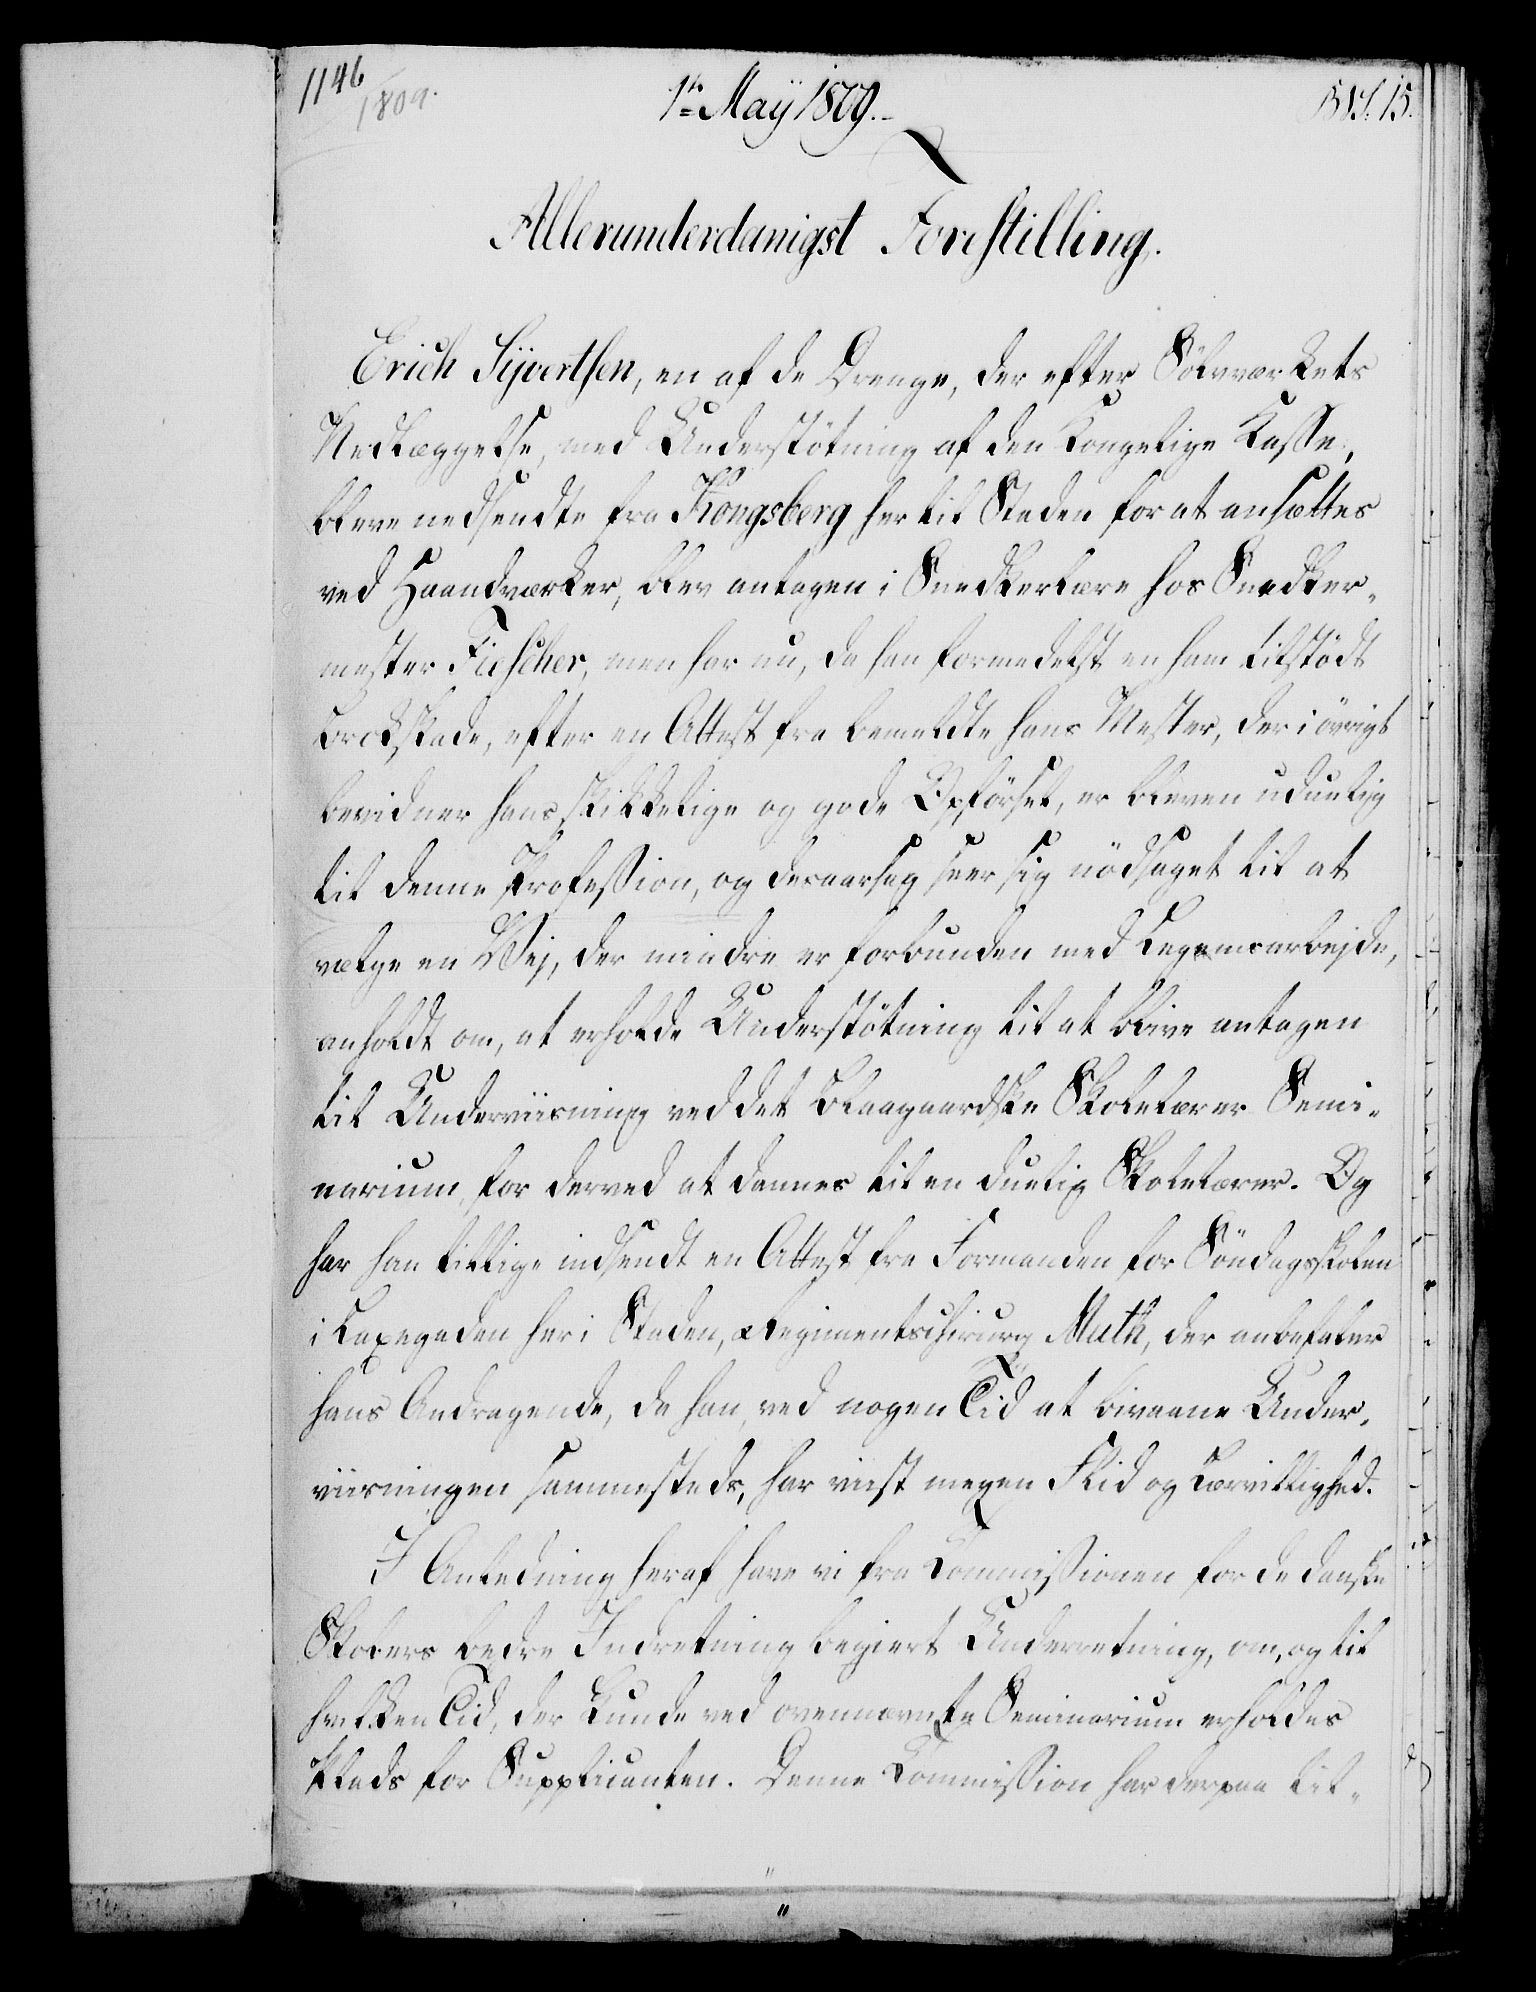 1146
1809.
1te May 1809.
15.
Allerunderdanigst Forestilling.
Erich Sijvertsen, en af de Drenge, der efter Sölvværkets
Nedlæggelse, med Understötning af den Kongelige Kasse,
bleve nedsendte fra Kongsberg her til Staden for at ansættes
ved Haandværker, blev antagen i Snedkerlære hos Snedker-
mester Fiescher, men har nu, da han formedelst en ham tilstödt
Brokskade, efter en Attest fra bemeldte hans Mester, der i övrigt
bevidner hans skikkelige og gode Opförsel, er bleven uduelig
til denne Profession, og desaarsag seer sig nödsaget til at
vælge en Vej, der mindre er forbunden med Legemsarbejde,
anholdt om, at erholde Understötning til at blive antagen
til Underviisning ved det Blaagaardske Skolelærer Semi-
narium, for derved at dannes til en duelig Skolelærer. Og
har han tillige indsendt en Attest fra Formanden for Söndagsskolen
i Laxegaden her i Staden, Regimentschirurg Muth, der anbefaler
hans Andragende, da han, ved nogen Tid at bivaane Under-
viisningen sammesteds, har viist megen Flid og Lærvillighed.
I Anledning heraf have vi fra Commissionen for de danske
Skolers bedre Indretning begiert Underretning, om, og til
hvilken Tid, der kunde ved ovennævnte Seminarium erholdes
Plads for Supplicanten. Denne Commission har derpaa til-